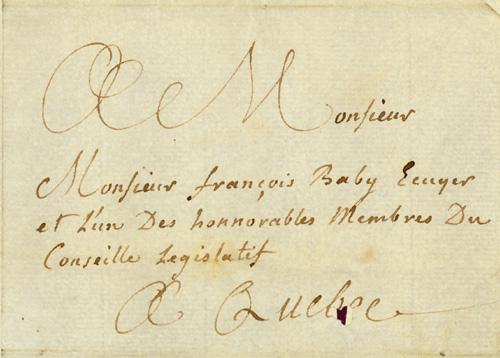 A Monsieur
Monsieur françois Baby Ecuyer
et L'un Des honnorables Membres Du
Conseille Legislatif
A Quebec